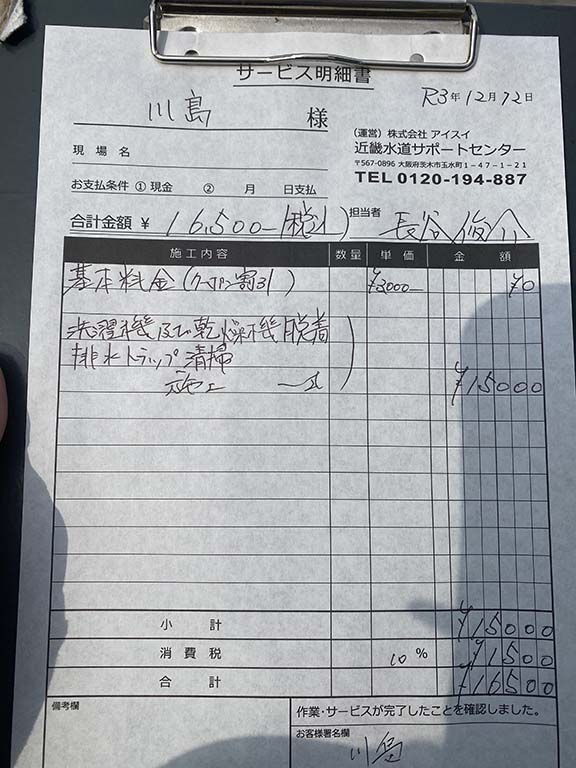 サービス明細書
R3年12月12日
川島 様
現場名
(運営) 株式会社 アイスイ
近畿水道サポートセンター
〒567-0896 大阪府茨木市玉水町1-47-1-21
TEL 0120-194-887
お支払条件 ① 現金 ② 月 日支払
合計金額 ¥ 16,500-(税込)
担当者 長谷 俊介
施工内容 数量 単価 金額
基本料金(クーポン割引) ¥3000- ¥0
洗濯機及び乾燥機脱着
排水トラップ清掃
施工 一式 ¥15000
小計 ¥15000
消費税 10% ¥1500
合計 ¥16500
備考欄
作業・サービスが完了したことを確認しました。
お客様署名欄
川島